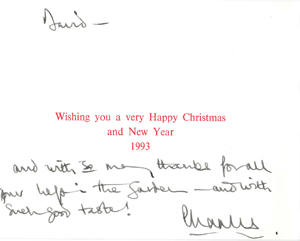 David —
Wishing you a very Happy Christmas
and New Year
1993
and with so many thanks for all
your help in the Garden — and with
such good taste!
Charles